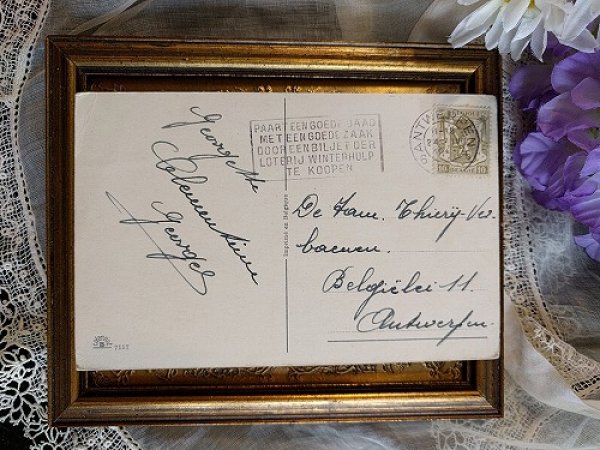 Georgette
Clementine
Georges
PAART EEN GOEDE DAAD
MET EEN GOEDE ZAAK
DOOR EEN BILJET DER
LOTERIJ WINTERHULP
TE KOOPEN
ANTWERPEN
10 10
Imprimé en Belgique
De Fam. Thierij-Ver
baenen.
Belgiëlei 11.
Antwerpen
7157